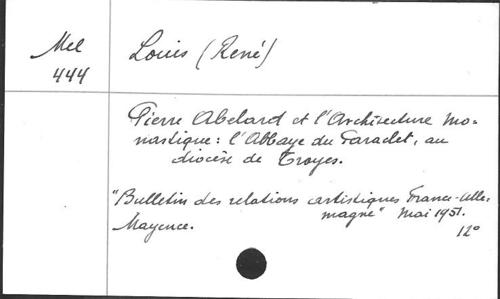 Mel
444
Louis (René)
Pierre Abelard et l'Architecture mo-
nastique : l'Abbaye du Paraclet, au
diocèse de Troyes.
"Bulletin des relations artistiques France-Alle-
magne" Mai 1951.
Mayence.
12°